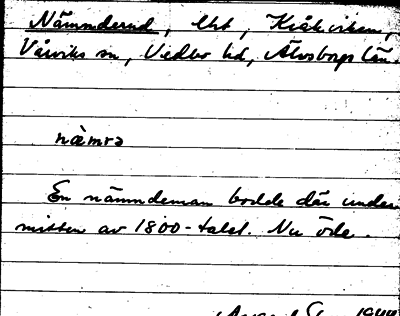 Nämnderud, lht, Kråkviken,
Vårviks sn, Vedbo hd, Älvsborgs län.
næ̀mrə
En nämndeman bodde där under
mitten av 1800-talet. Nu öde.